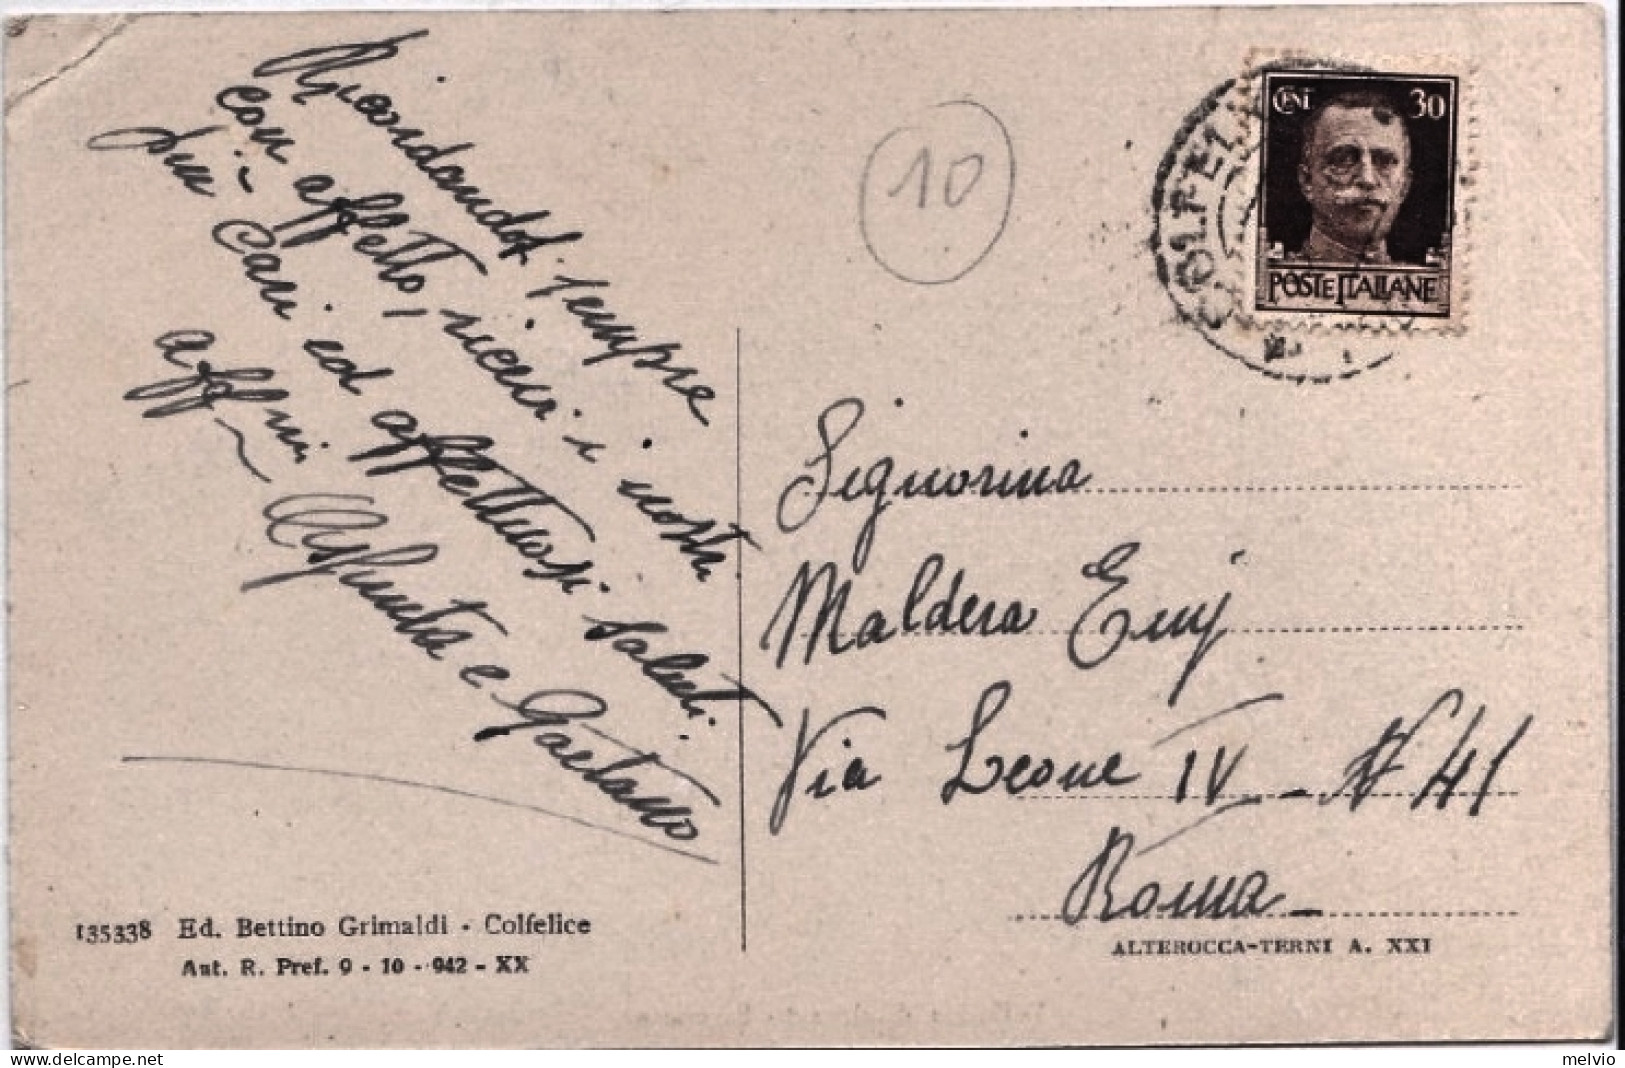 Ricordandoti sempre
con affetto, ricevi i nostri
più cari ed affettuosi saluti.
affmi
Assunta e Gaetano
10
COLFELI
CENT 30
POSTE ITALIANE
Signorina
Maldera Emj
Via Leone IV - N 41
Roma -
135338 Ed. Bettino Grimaldi - Colfelice
Aut. R. Pref. 9 - 10 - 942 - XX
ALTEROCCA-TERNI A. XXI
melvio